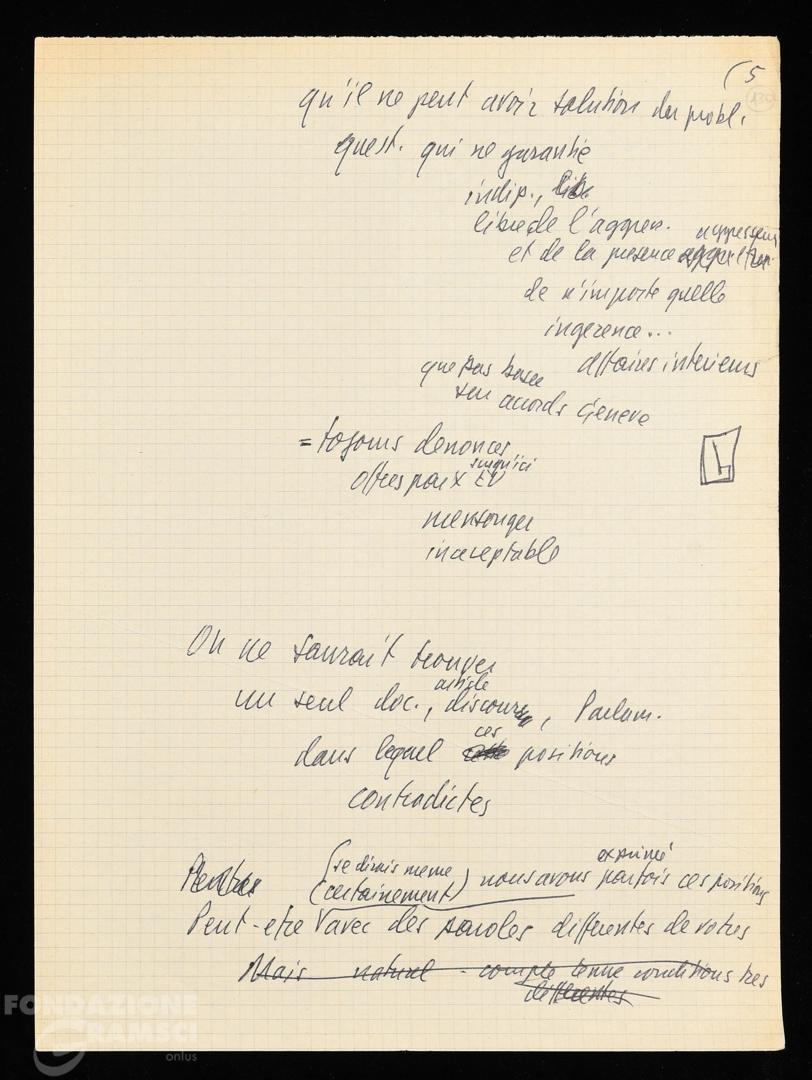 (5
qu'il ne peut avoir solution du probl.
quest. qui ne garantie
indip., lib.
libre de l'aggres.
et de la presence aggresseurs
de n'importe quelle
ingerence...
affaires interieurs
que pas basée
sur acords Geneve
= tojours denonces
offres paix EU jusqu'ici
mensonger
inaceptable
On ne saurait trouver
un seul doc., article discours, Parlam.
dans lequel ces positions
contradictes
(je dirais meme exprimé
(certainement) nous avons parfois ces positions
Peut-etre avec des paroles differentes de votres
Mais naturel - compte tenue conditions tres
differentes
FONDAZIONE
GRAMSCI
onlus